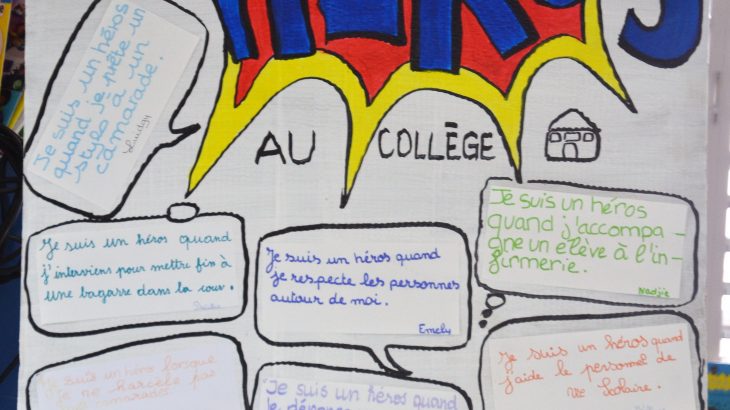 HÉROS
AU COLLÈGE
Je suis un héros
quand je prête un
stylo à un
camarade.
Je suis un héros quand
j'interviens pour mettre fin à
une bagarre dans la cour.
Je suis un héros quand
je respecte les personnes
autour de moi.
Emely
Je suis un héros
quand j'accompa-
gne un élève à l'in-
firmerie.
Nadjie
Je suis un héros lorsque
je ne harcèle pas
camarades
Je suis un héros quand
Je suis un héros quand
j'aide le personnel de
vie scolaire.